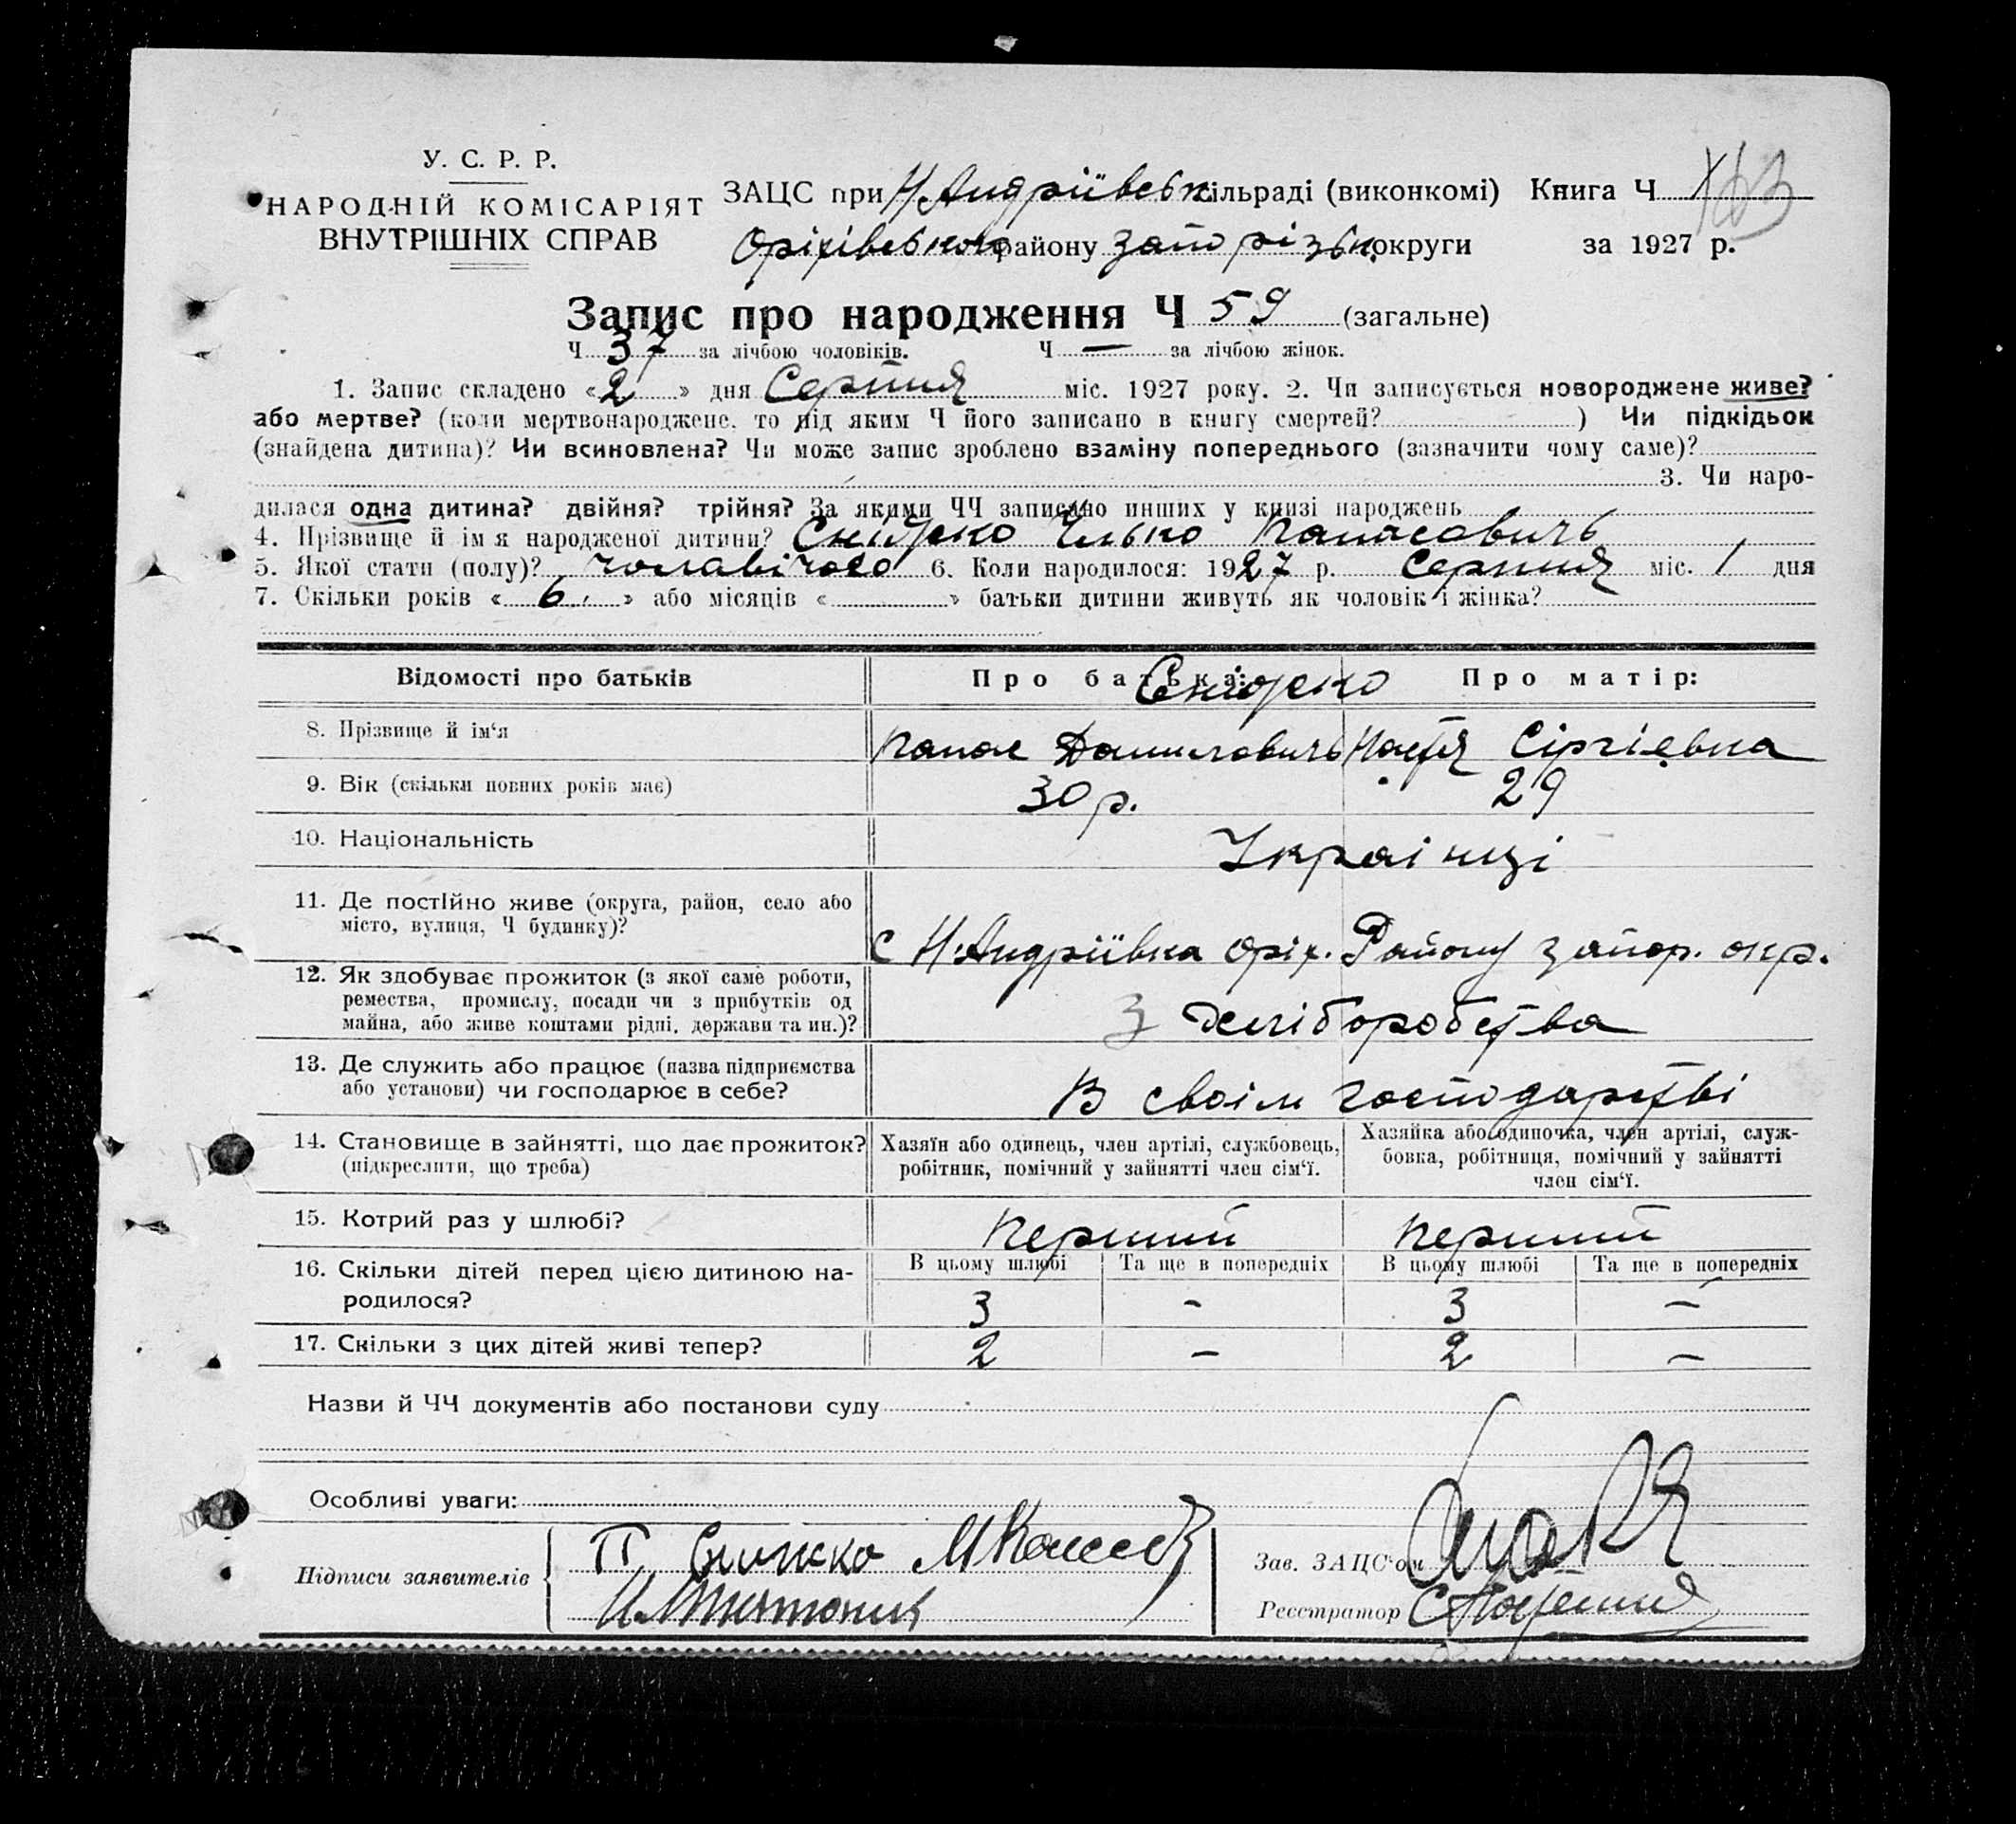 У. С. Р. Р.
НАРОДНІЙ КОМІСАРІЯТ
ВНУТРІШНІХ СПРАВ
ЗАЦС при Н Андріївськ сільраді (виконкомі) Книга Ч
Оріхівського району Запорізьк. округи за 1927 р.
Запис про народження Ч 59 (загальне)
Ч 37 за лічбою чоловіків. Ч — за лічбою жінок.
1. Запис складено «2» дня Серпня міс. 1927 року. 2. Чи записується новороджене живе?
або мертве? (коли мертвонароджене, то під яким Ч його записано в книгу смертей? ) Чи підкідьок
(знайдена дитина)? Чи всиновлена? Чи може запис зроблено взаміну попереднього (зазначити чому саме)?
3. Чи наро-
дилася одна дитина? двійня? трійня? За якими ЧЧ записано инших у книзі народжень
4. Прізвище й ім я народженої дитини? Сніжко Панасовичь
5. Якої стати (полу)? чоловічого 6. Коли народилося: 1927 р. Серпня міс. 1 дня
7. Скільки років «6» або місяців « » батьки дитини живуть як чоловік і жінка?
Відомості про батьків Про батька: Про матір:
Сніжко
8. Прізвище й ім‘я Панас Даниловичь Настя Сіргіевна
9. Вік (скільки повних років має) 30 р. 29
10. Національність Украінці
11. Де постійно живе (округа, район, село або
місто, вулиця, Ч будинку)?
с Н-Андріївка Оріх. Району Запор. окр.
12. Як здобуває прожиток (з якої саме роботи,
ремества, промислу, посади чи з прибутків од
майна, або живе коштами рідні, держави та ин.)?
З хліборобства
13. Де служить або працює (назва підприємства
або установи) чи господарює в себе?
В своім господарстві
14. Становище в зайнятті, що дає прожиток?
(підкреслити, що треба)
Хазяїн або одинець, член артілі, службовець,
робітник, помічний у зайнятті член сім‘ї.
Хазяйка або одиночка, член артілі, служ-
бовка, робітниця, помічний у зайнятті
член сім‘ї.
15. Котрий раз у шлюбі? Перший Перший
16. Скільки дітей перед цією дитиною на-
родилося?
В цьому шлюбі Та ще в попередніх В цьому шлюбі Та ще в попередніх
3 - 3 —
17. Скільки з цих дітей живі тепер? 2 — 2 —
Назви й ЧЧ документів або постанови суду
Особливі уваги:
Підписи заявителів
П Снижко
Зав. ЗАЦС‘ом
Реєстратор